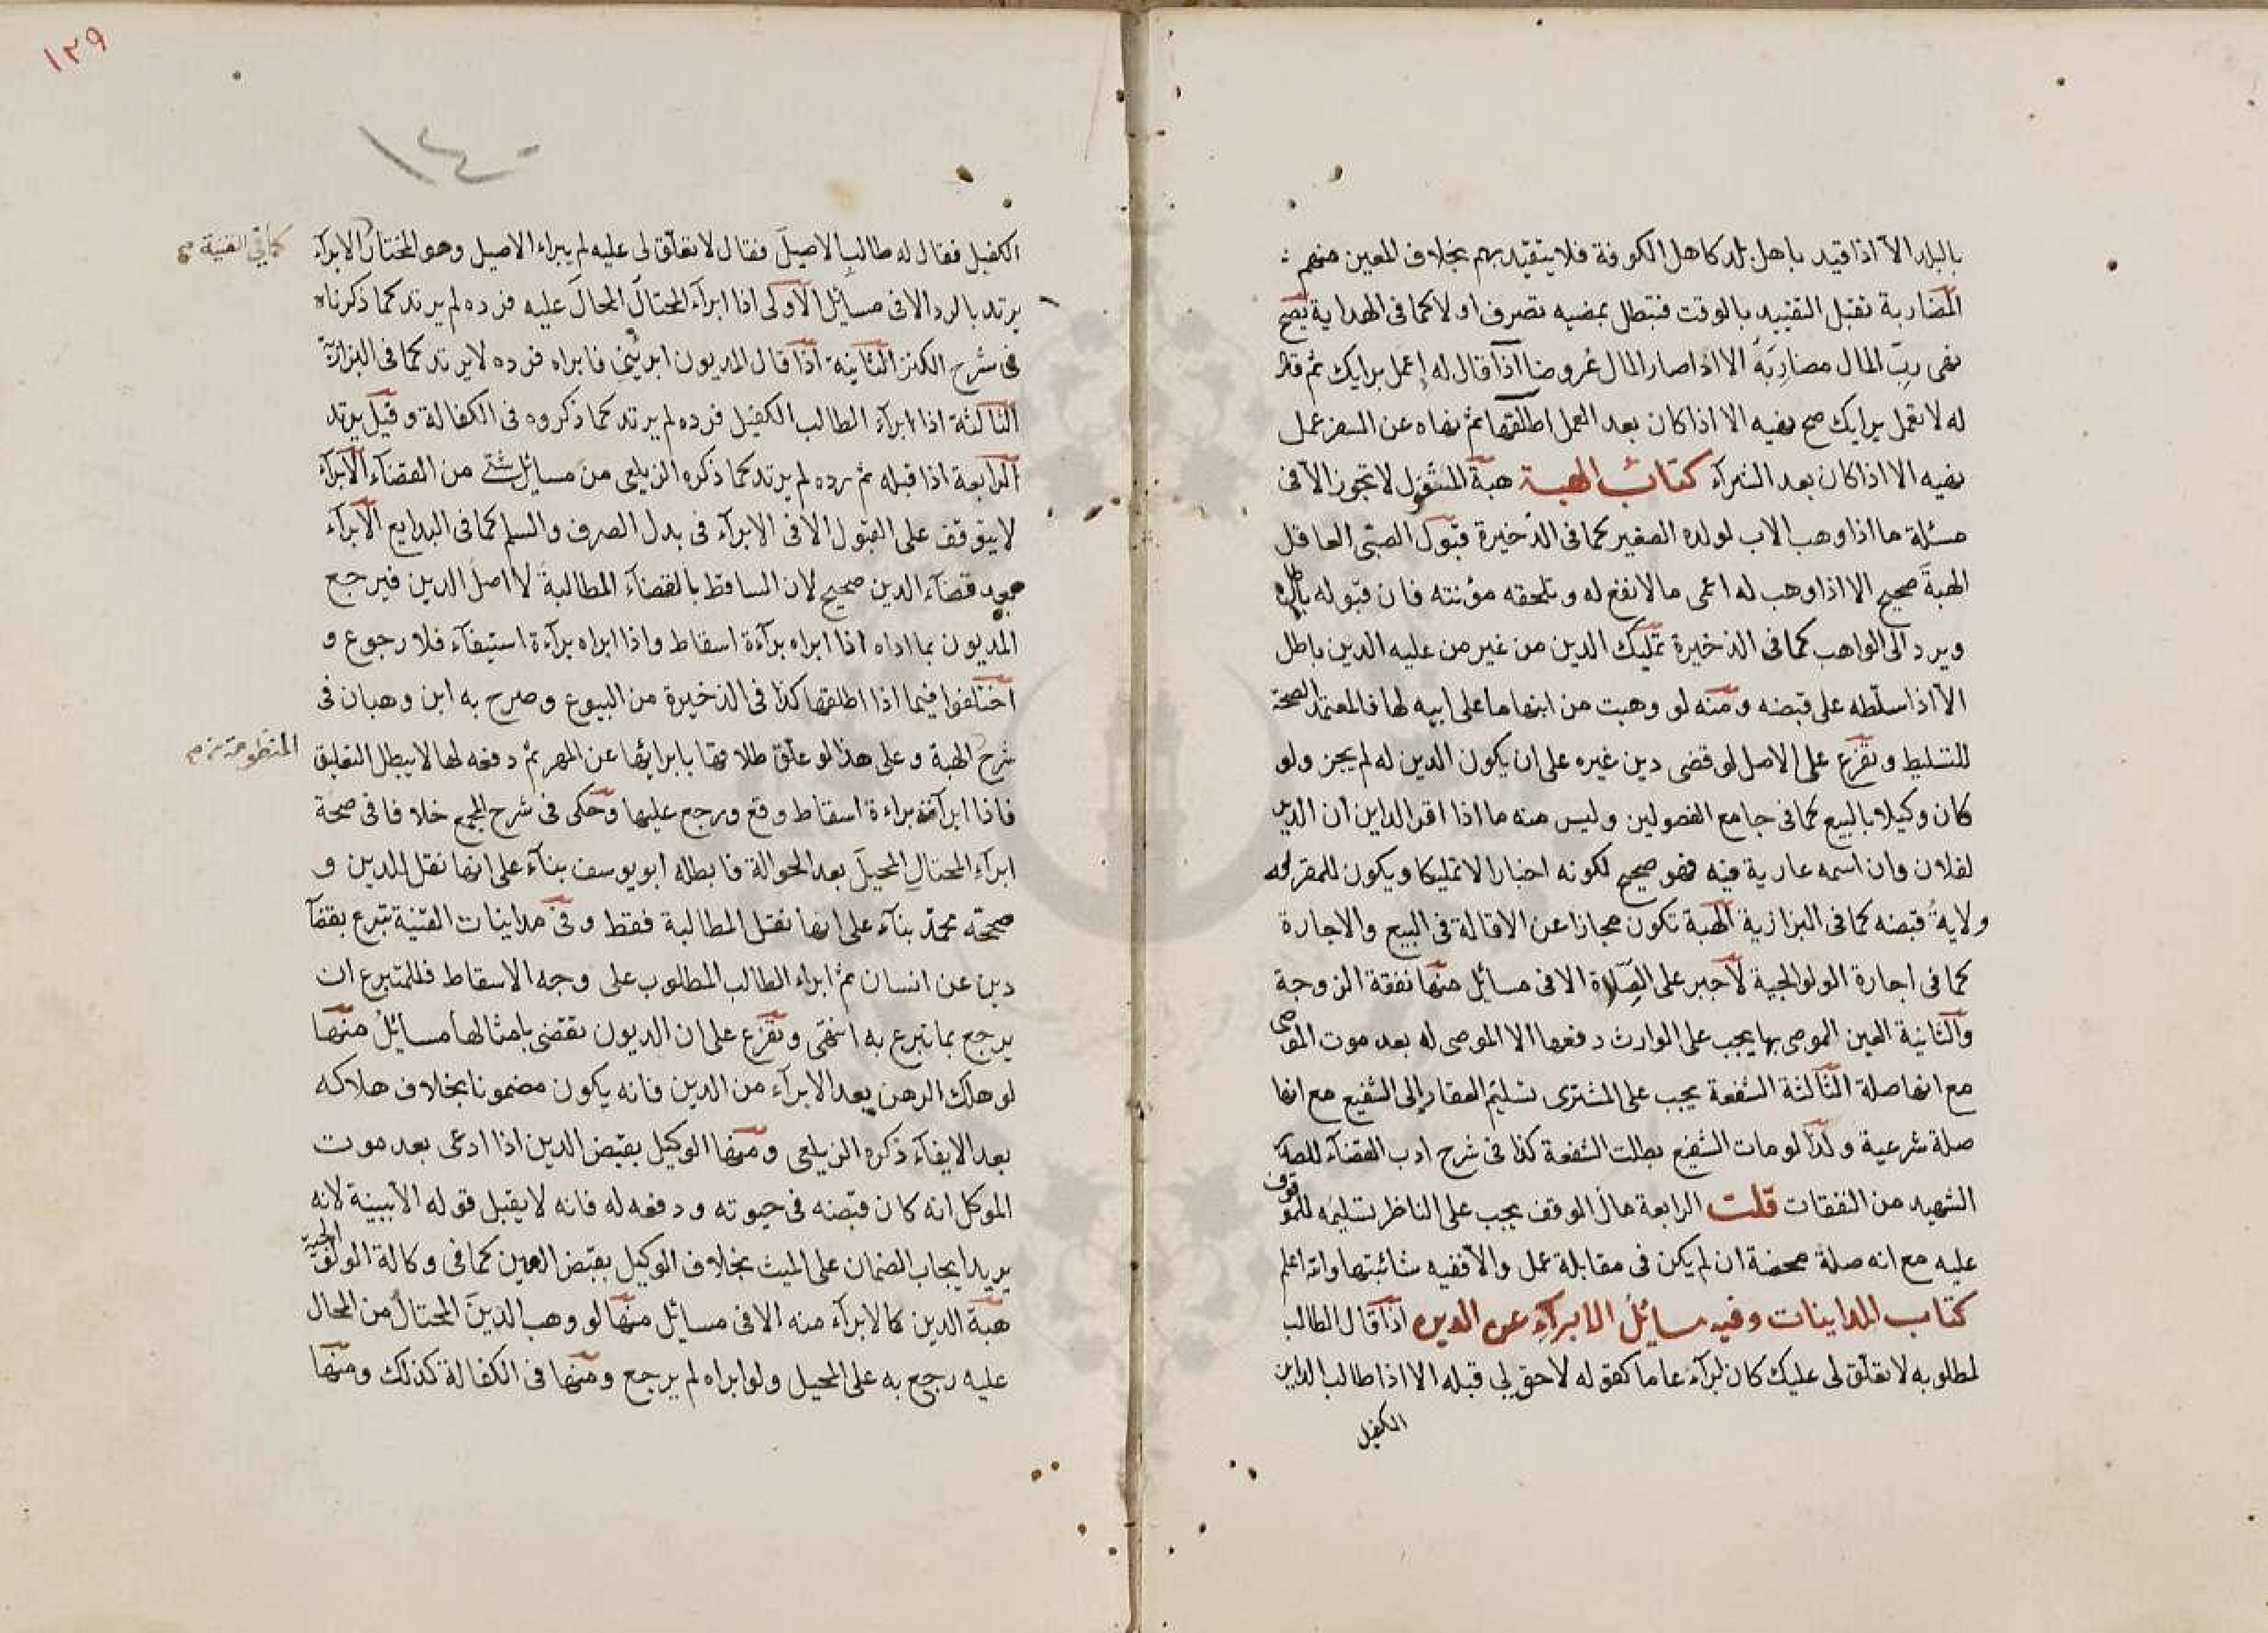 بالبلد الا اذا قيد باهل بلد كاهل الكوفة فلا يتقيد بهم بخلاف المعين منهم
المضاربة تقبل التقييد بالوقت فتبطل بمضيه تصرف او لا كما فى الهداية يصح
نهى رب المال مضاربَه الا اذا صار المال عُروضا اذا قال له إعمل برايك ثم قال
له لا تعمل برايك صح نهيه الا اذا كان بعد العمل اطلقها ثم نهاه عن السفر عمل
نهيه الا اذا كان بعد الشرآء كتاب الهبة هبة المشغول لا تجوز الا فى
مسئلة ما اذا وهب الاب لولده الصغير كما فى الذخيرة قبول الصبى العاقل
الهبةَ صحيح الا اذا وهب له اعمى ما لا نفع له و تلحقه مؤنته فان قبوله باطل
ويرد الى الواهب كما فى الذخيرة تمليك الدين من غير من عليه الدين باطل
الا اذا سلّطه على قبضه ومنه لو وهبت من ابنها ما على ابيه لها فالمعتمد الصحة
للتسليط و تفرع على الاصل لو قضى دين غيره على ان يكون الدين له لم يجز ولو
كان وكيلا بالبيع كما فى جامع الفصولين وليس منه ما اذا اقر الداين ان الدين
لفلان وان اسمه عارية فيه فهو صحيح لكونه اخبارا لا تمليكا ويكون للمقر له
ولايةُ قبضه كما فى البزازية الهبة تكون مجازا عن الاقالة فى البيع والاجارة
كما فى اجارة الولوالجية لا جبر على الصِّلاة الا فى مسائل منها نفقة الزوجة
والثانية العين الموصى بها يجب على الوارث دفعها الا الموصى له بعد موت الموصى
مع انها صلة الثالثة الشفعة يجب على المشترى تسليم العقار إلى الشفيع مع انها
صلة شرعية ولذا لو مات الشفيع بطلت الشفعة كذا فى شرح ادب القضآء للصدر
الشهيد من النفقات قلت الرابعة مال الوقف يجب على الناظر تسليمه للموقوف
عليه مع انه صلة محضة ان لم يكن فى مقابلة عمل والا ففيه شائبتها والله اعلم
كتاب المداينات وفيه مسائل الابرآء عن الدين اذا قال الطالب
لمطلوبه لا تعلّق لى عليك كان ابرآء عاما كقوله لا حق لى قبله الا اذا طالب الداين
الكفيل
١٣٩
١٤٠
الكفيل فقال له طالب الاصيلَ فقال لا تعلّق لى عليه لم يبراء الاصيل وهو المختار الابرآء
كما فى القنية صح
يرتد بالرد الا فى مسايل الاولى اذا ابرآء المحتالُ المحالَ عليه فرده لم يرتد كما ذكرناه
فى شرح الكنز الثانية اذا قال المديون ابرئنى فابراه فرده لا يرتد كما فى البزازية
الثالثة اذا ابرآء الطالب الكفيل فرده لم يرتد كما ذكروه فى الكفالة وقيل يرتد
الرابعة اذا قبله ثم رده لم يرتد كما ذكره الزيلعى من مسائل شتى من القضآء الابرآء
لا يتوقف على القبول الا فى الابرآء فى بدل الصرف والسلم كما فى البدايع الابرآء
بعد قضآء الدين صحيح لان الساقط بالقضآء المطالبةُ لا اصل الدين فيرجع
المديون بما اداه اذا ابراه برآءة اسقاط واذا ابراه برآءة استيفآء فلا رجوع و
اختلفوا فيما اذا اطلقها كذا فى الذخيرة من البيوع وصرح به ابن وهبان فى
شرح الهبة وعلى هذا لو علّق طلاقها بابرائها عن المهر ثم دفعه لها لا يبطل التعليق
المنظومة صح
فاذا ابرآته براءة اسقاط وقع ورجع عليها وحكى فى شرح المجمع خلافا فى صحة
ابرآء المحتالِ المحيلَ بعد الحوالة فابطله ابو يوسف بنآء على انها نقل الدين و
صححّه محمّد بنآء على انها نقل المطالبة فقط وفى مداينات القنية تبرع بقضآ
دين عن انسان ثم ابراء الطالب المطلوب على وجه الاسقاط فللمتبرع ان
يرجع بما تبرع به انتهى وتفرع على ان الديون تقضى بامثالها مسائلُ منها
لو هلك الرهن بعد الابرآء من الدين فانه يكون مضمونا بخلاف هلاكه
بعد الايفآء ذكره الزيلعى ومنها الوكيل بقبض الدين اذا ادعى بعد موت
الموكل انه كان قبضه فى حيوته ودفعه له فانه لا يقبل قوله الا ببينة لانه
يريد ايجاب الضمان على الميت بخلاف الوكيل بقبض العين كما فى وكالة الولوالجية
هبة الدين كالابرآء منه الا فى مسائل منها لو وهب الدينَ المحتالُ من المحال
عليه رجع به على المحيل ولو ابراه لم يرجع ومنها فى الكفالة كذلك ومنها